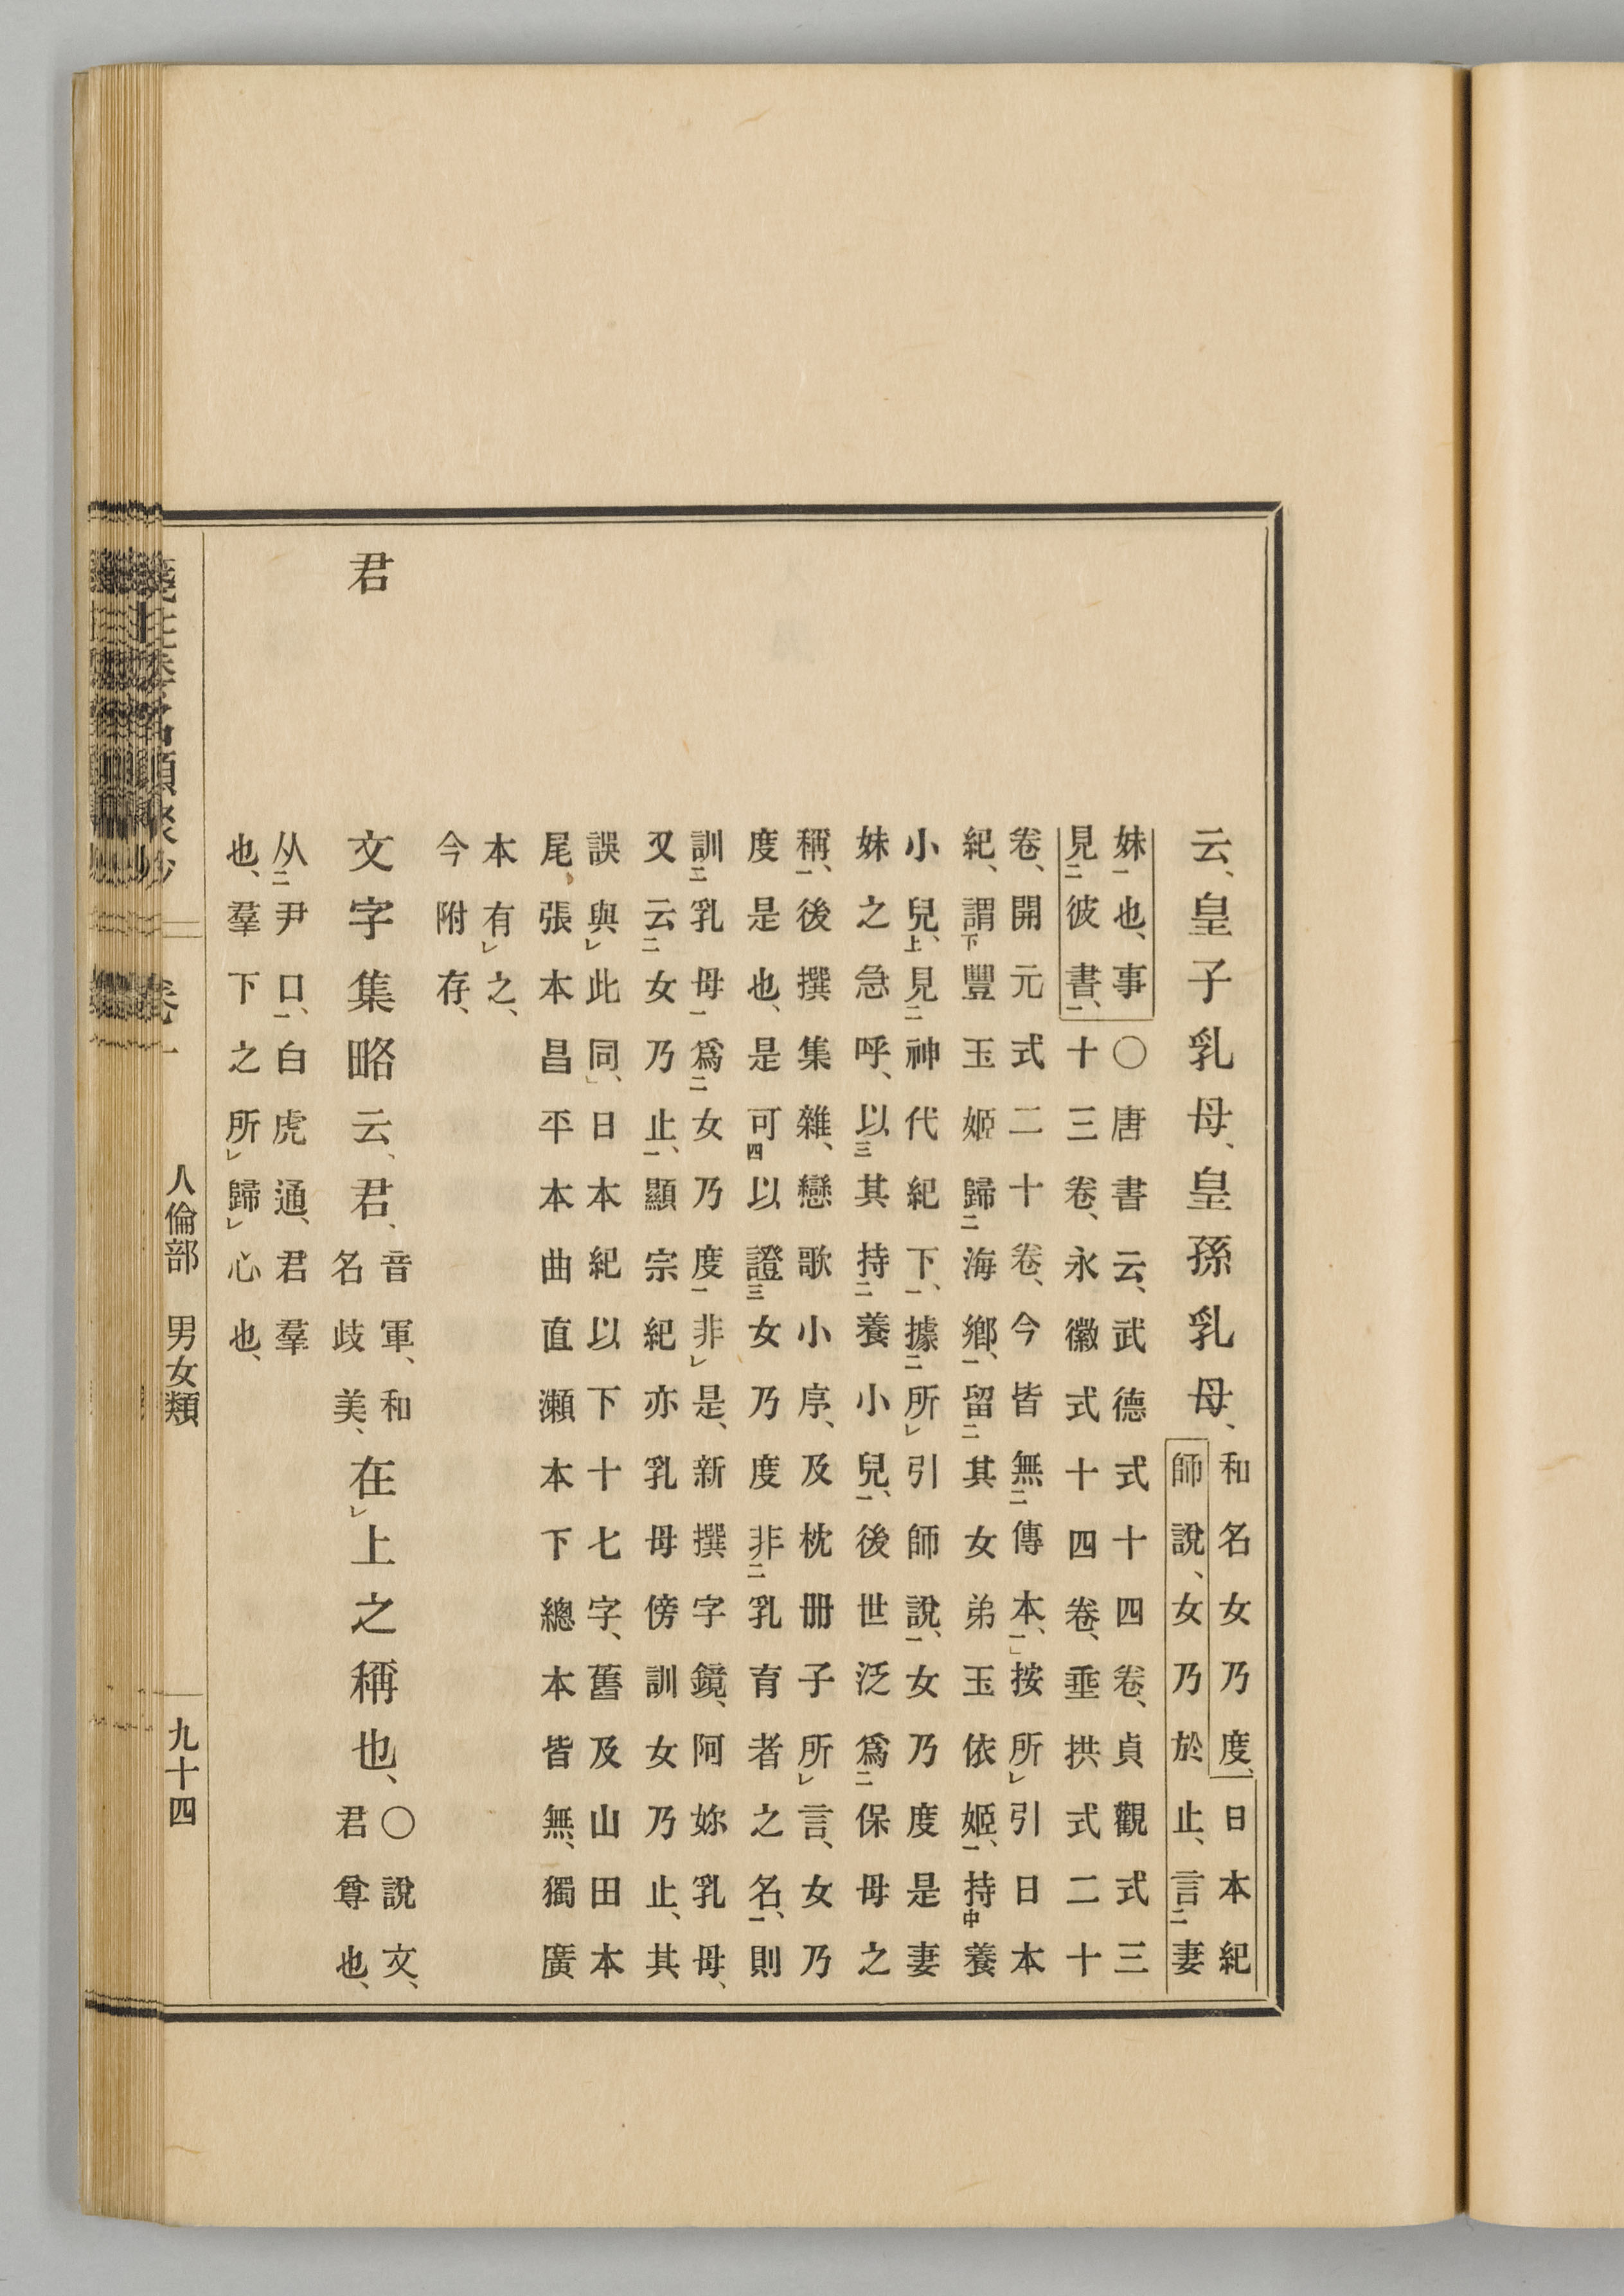 云、皇子乳母、皇孫乳母、和名女乃度、日本紀
師說、女乃於止、言二妻
妹一也、事〇唐書云、武德式十四卷、貞觀式三
見二彼書一、十三卷、永徽式十四卷、垂拱式二十
卷、開元式二十卷、今皆無二傳本一、」按所レ引日本
紀、謂下豐玉姬歸二海鄉一、留二其女弟玉依姬一、持中養
小兒上、見二神代紀下一、據二所レ引師說一、女乃度是妻
妹之急呼、以三其持二養小兒一、後世泛爲二保母之
稱一、後撰集雜、戀歌小序、及枕册子所レ言、女乃
度是也、是可四以證三女乃度非二乳育者之名一、則
訓二乳母一爲二女乃度一非レ是、新撰字鏡、阿妳乳母、
又云二女乃止一、顯宗紀亦乳母傍訓女乃止、其
誤與レ此同、」日本紀以下十七字、舊及山田本
尾、張本昌平本曲直瀨本下總本皆無、獨廣
本有レ之、
今附存、
君
文字集略云、君、音軍、和
名歧美、
在レ上之稱也、〇說文、
君尊也、
从二尹口一、白虎通、君羣
也、羣下之所レ歸レ心也、
人倫部 男女類
九十四